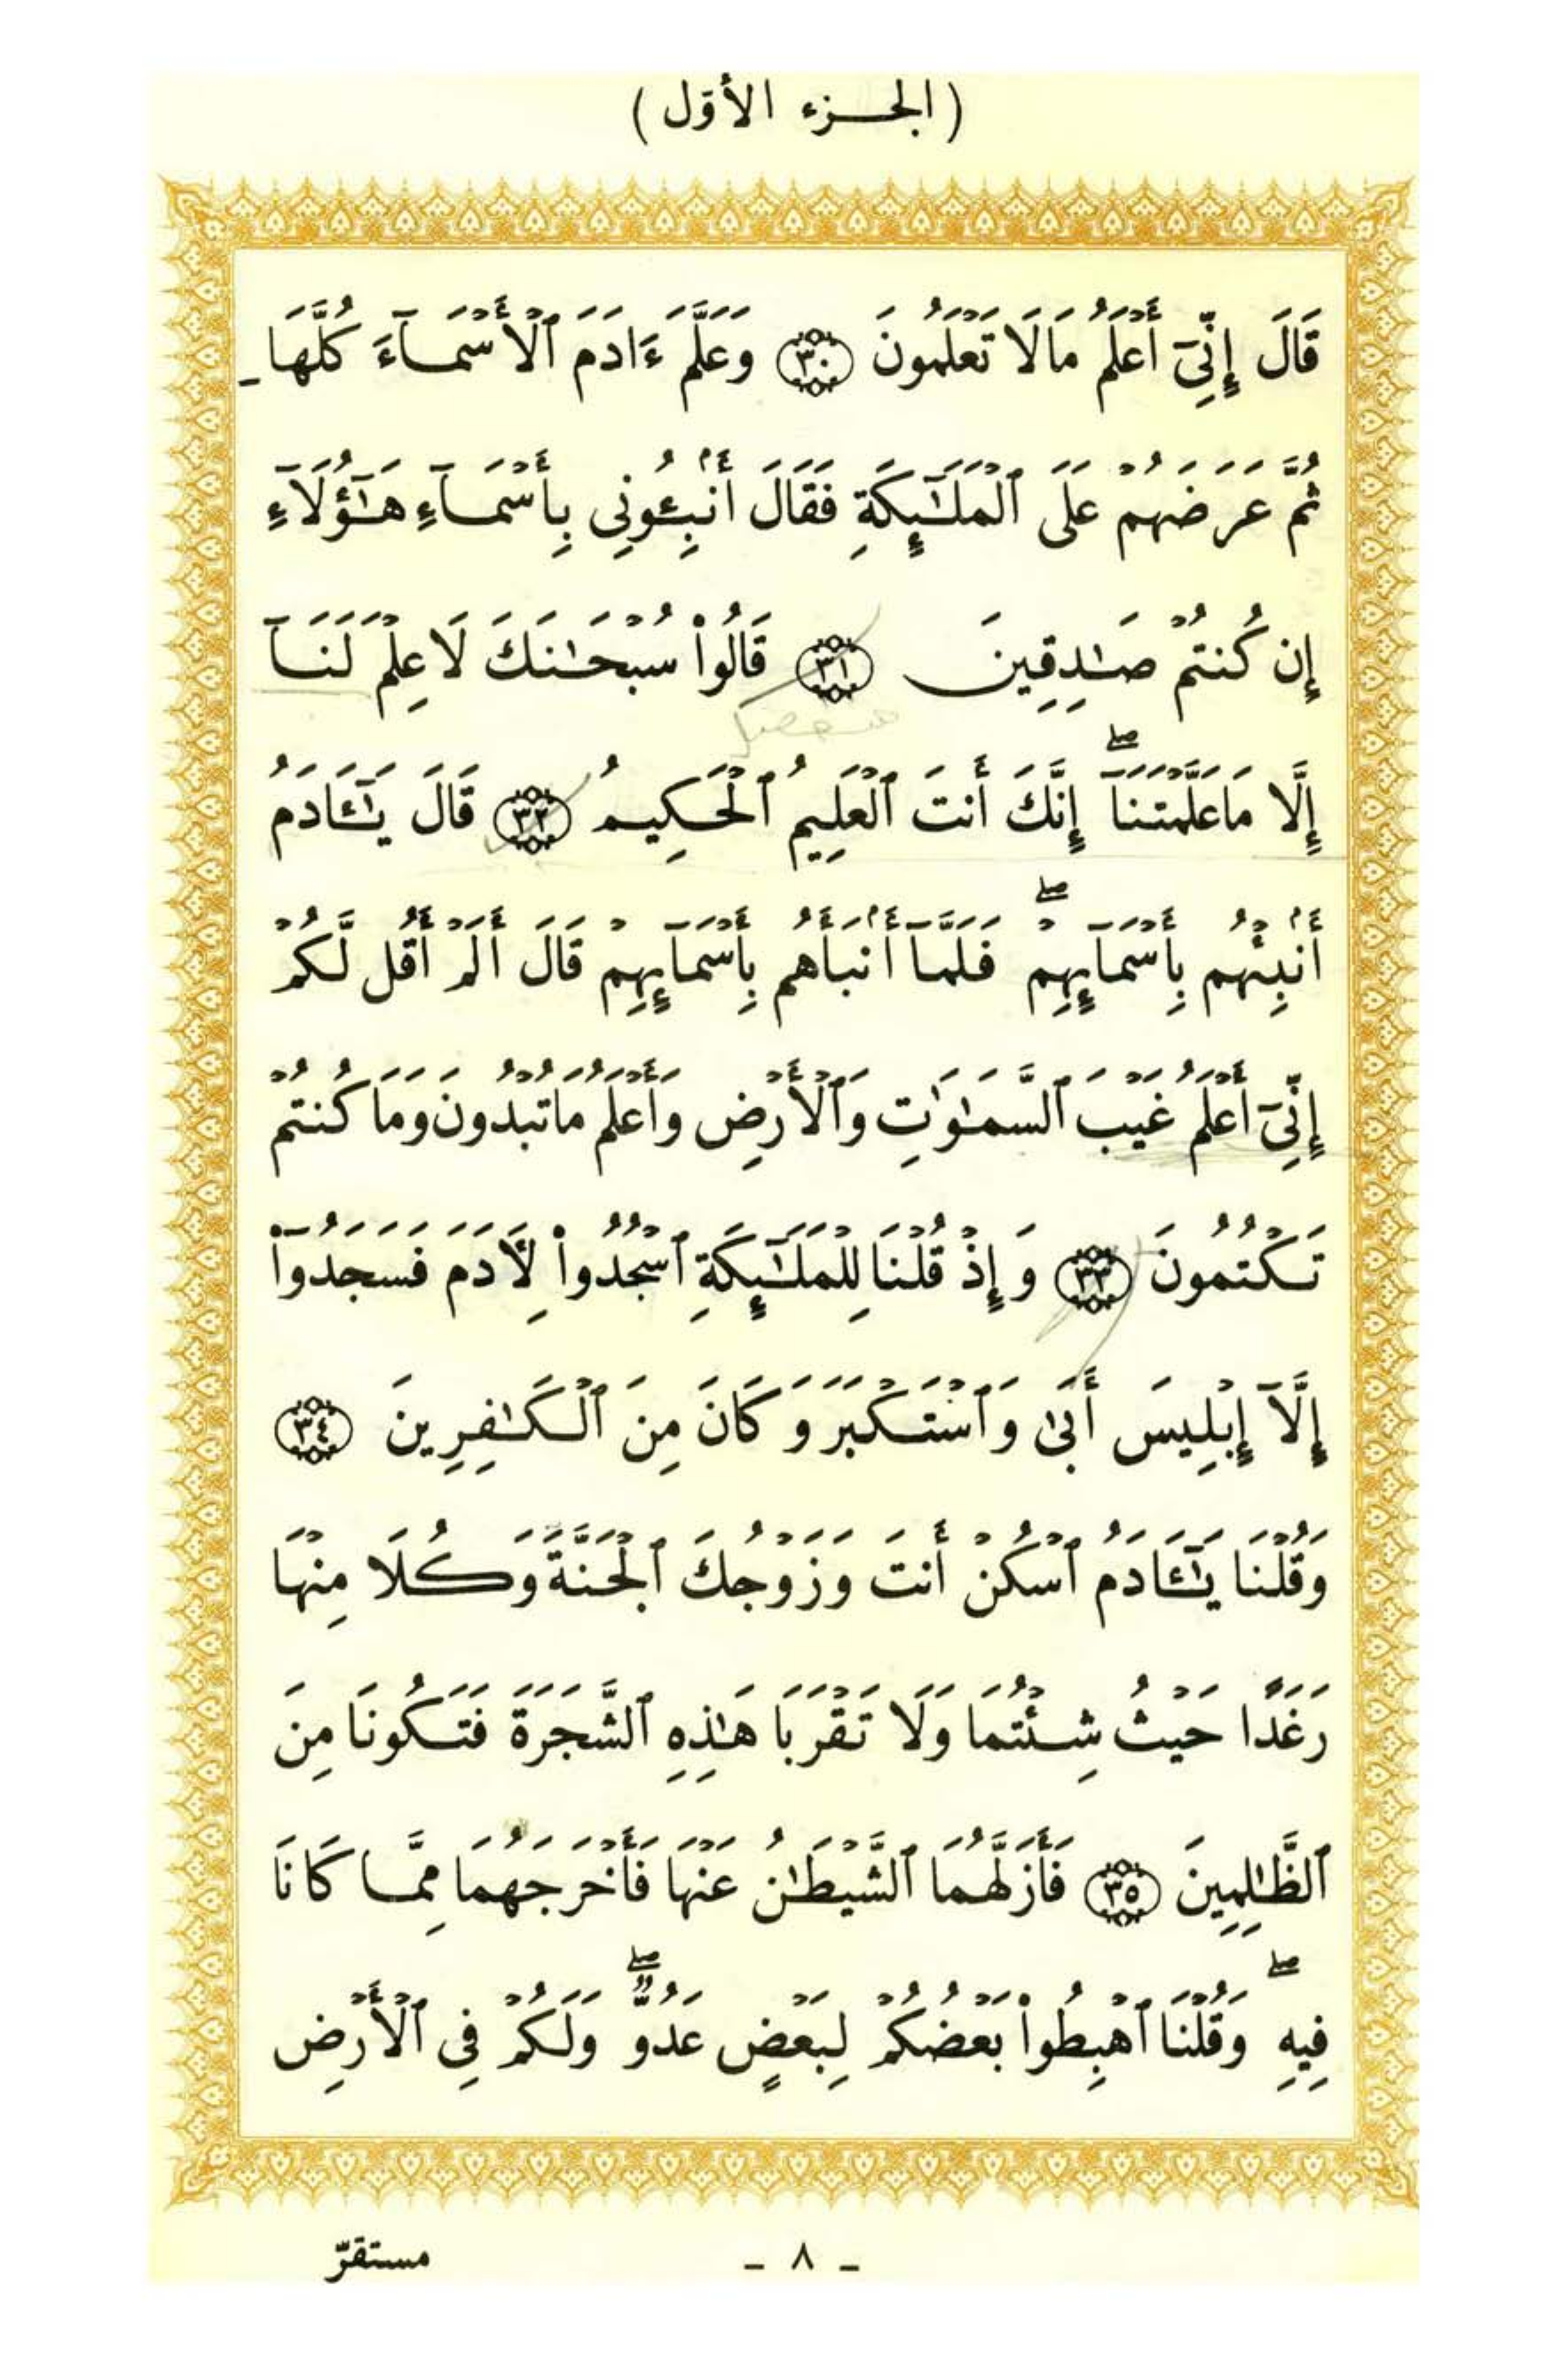 (الجزء الأوّل)
قَالَ إِنِّىٓ أَعْلَمُ مَا لَا تَعْلَمُونَ ٣٠ وَعَلَّمَ ءَادَمَ ٱلْأَسْمَآءَ كُلَّهَا
ثُمَّ عَرَضَهُمْ عَلَى ٱلْمَلَـٰٓئِكَةِ فَقَالَ أَنۢبِـُٔونِى بِأَسْمَآءِ هَـٰٓؤُلَآءِ
إِن كُنتُمْ صَـٰدِقِينَ ٣١ قَالُوا۟ سُبْحَـٰنَكَ لَا عِلْمَ لَنَآ
إِلَّا مَا عَلَّمْتَنَآ ۖ إِنَّكَ أَنتَ ٱلْعَلِيمُ ٱلْحَكِيمُ ٣٢ قَالَ يَـٰٓـَٔادَمُ
أَنۢبِئْهُم بِأَسْمَآئِهِمْ ۖ فَلَمَّآ أَنۢبَأَهُم بِأَسْمَآئِهِمْ قَالَ أَلَمْ أَقُل لَّكُمْ
إِنِّىٓ أَعْلَمُ غَيْبَ ٱلسَّمَـٰوَٰتِ وَٱلْأَرْضِ وَأَعْلَمُ مَا تُبْدُونَ وَمَا كُنتُمْ
تَكْتُمُونَ ٣٣ وَإِذْ قُلْنَا لِلْمَلَـٰٓئِكَةِ ٱسْجُدُوا۟ لِـَٔادَمَ فَسَجَدُوٓا۟
إِلَّآ إِبْلِيسَ أَبَىٰ وَٱسْتَكْبَرَ وَكَانَ مِنَ ٱلْكَـٰفِرِينَ ٣٤
وَقُلْنَا يَـٰٓـَٔادَمُ ٱسْكُنْ أَنتَ وَزَوْجُكَ ٱلْجَنَّةَ وَكُلَا مِنْهَا
رَغَدًا حَيْثُ شِئْتُمَا وَلَا تَقْرَبَا هَـٰذِهِ ٱلشَّجَرَةَ فَتَكُونَا مِنَ
ٱلظَّـٰلِمِينَ ٣٥ فَأَزَلَّهُمَا ٱلشَّيْطَـٰنُ عَنْهَا فَأَخْرَجَهُمَا مِمَّا كَانَا
فِيهِ ۖ وَقُلْنَا ٱهْبِطُوا۟ بَعْضُكُمْ لِبَعْضٍ عَدُوٌّ ۖ وَلَكُمْ فِى ٱلْأَرْضِ
- ٨ -
مستقرّ